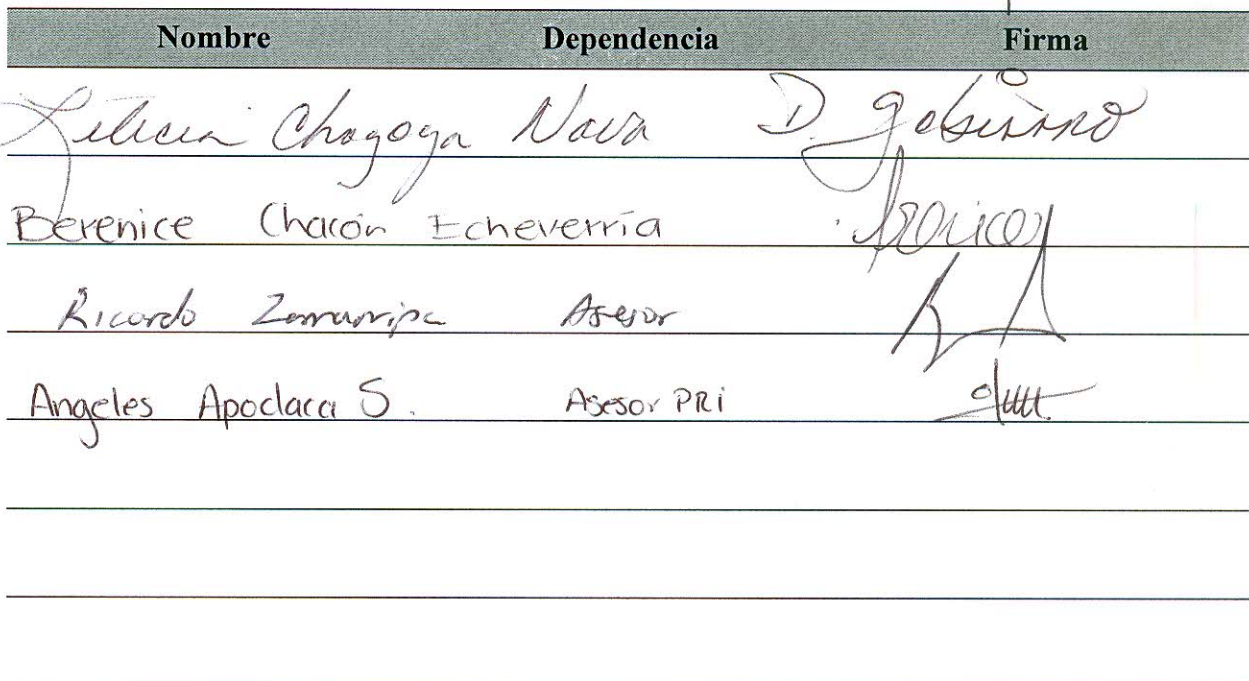 Nombre Dependencia Firma
Leticia Chagoya Nava D. gobierno
Berenice Chacón Echeverría
Ricardo Zamarripa Asesor
Angeles Apodaca S. Asesor PRI